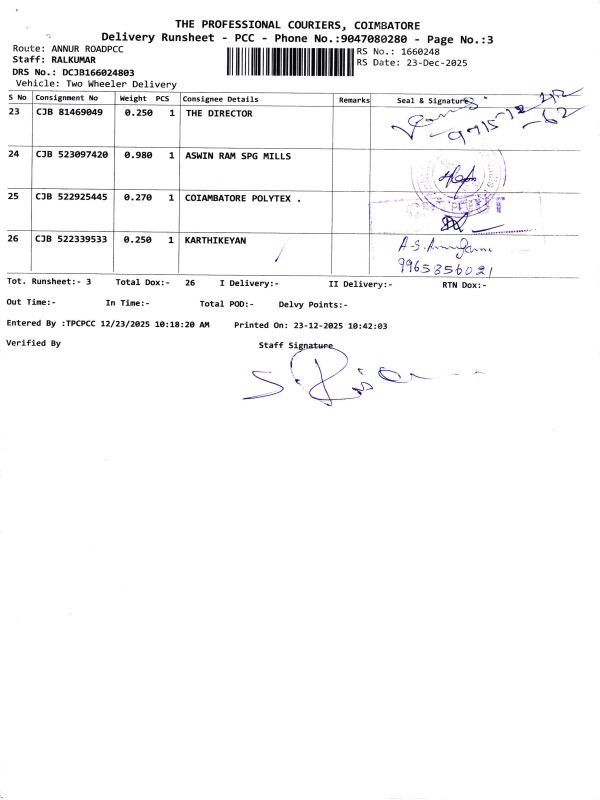 THE PROFESSIONAL COURIERS, COIMBATORE
Delivery Runsheet - PCC - Phone No.:9047080280 - Page No.:3
Route: ANNUR ROADPCC
Staff: RALKUMAR
DRS No.: DCJB166024803
Vehicle: Two Wheeler Delivery
RS No.: 1660248
RS Date: 23-Dec-2025
S No Consignment No Weight PCS Consignee Details Remarks Seal & Signature
23 CJB 81469049 0.250 1 THE DIRECTOR
24 CJB 523097420 0.980 1 ASWIN RAM SPG MILLS
25 CJB 522925445 0.270 1 COIAMBATORE POLYTEX .
26 CJB 522339533 0.250 1 KARTHIKEYAN
9965856021
Tot. Runsheet:- 3 Total Dox:- 26 I Delivery:- II Delivery:- RTN Dox:-
Out Time:- In Time:- Total POD:- Delvy Points:-
Entered By :TPCPCC 12/23/2025 10:18:20 AM Printed On: 23-12-2025 10:42:03
Verified By Staff Signature